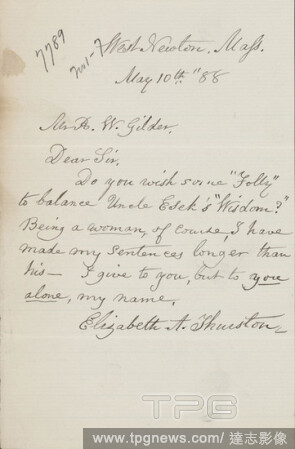 7789
West Newton. Mass.
May 10th "88
Mr R. W. Gilder,
Dear Sir,
Do you wish some "Folly"
to balance Uncle Esek's "Wisdom?"
Being a woman, of course, I have
made my sentences longer than
his— I give to you, but to you
alone, my name,
Elizabeth A. Thurston
TPG
www.tpgnews.com / 達志影像